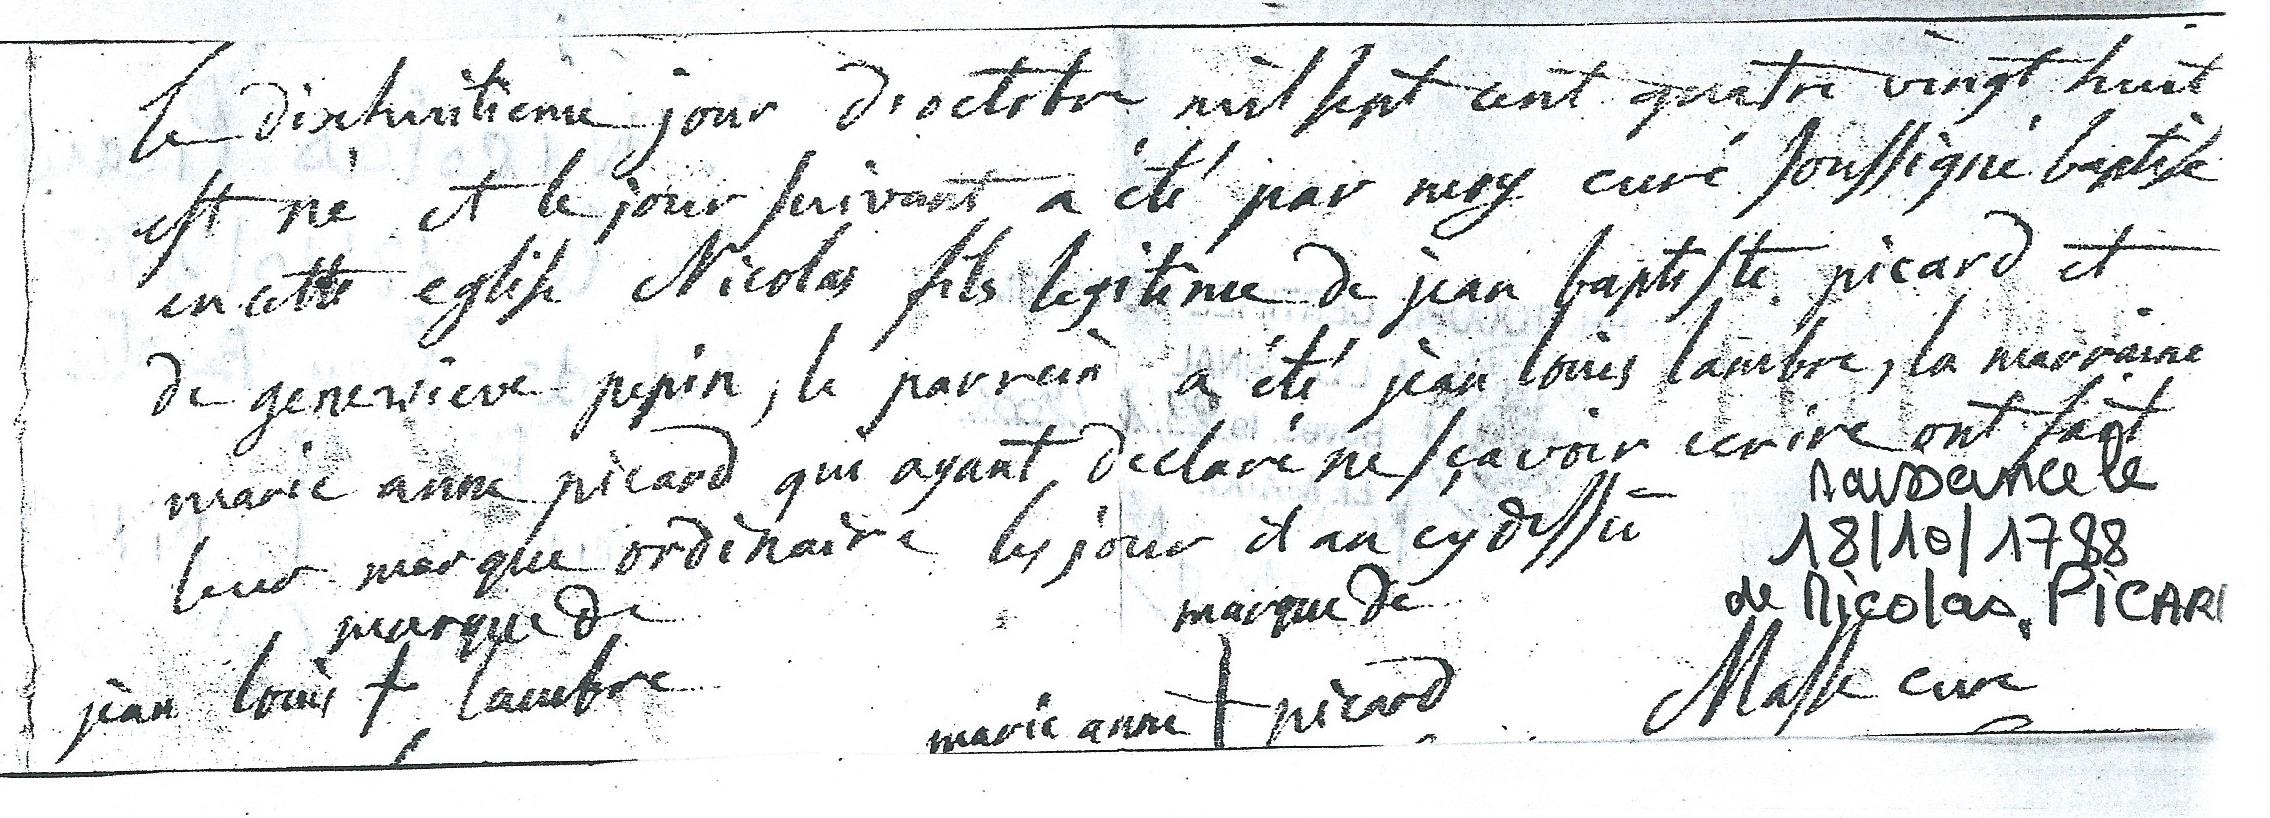 le dixhuitieme jour d'octobre mil sept cent quatre vingt huit
est né et le jour suivant a été par moy curé soussigné baptisé
en cette eglise Nicolas fils legitime de jean baptiste picard et
de genevieve pepin, le parrein a été jean louis lambre, la marraine
marie anne picard qui ayant declaré ne sçavoir ecrire ont fait
leur marque ordinaire les jour et an cy dessu
naissance le
18/10/1788
de Nicolas PICARD
marque de marque de
jean louis + lambre marie anne + picard Masse curé